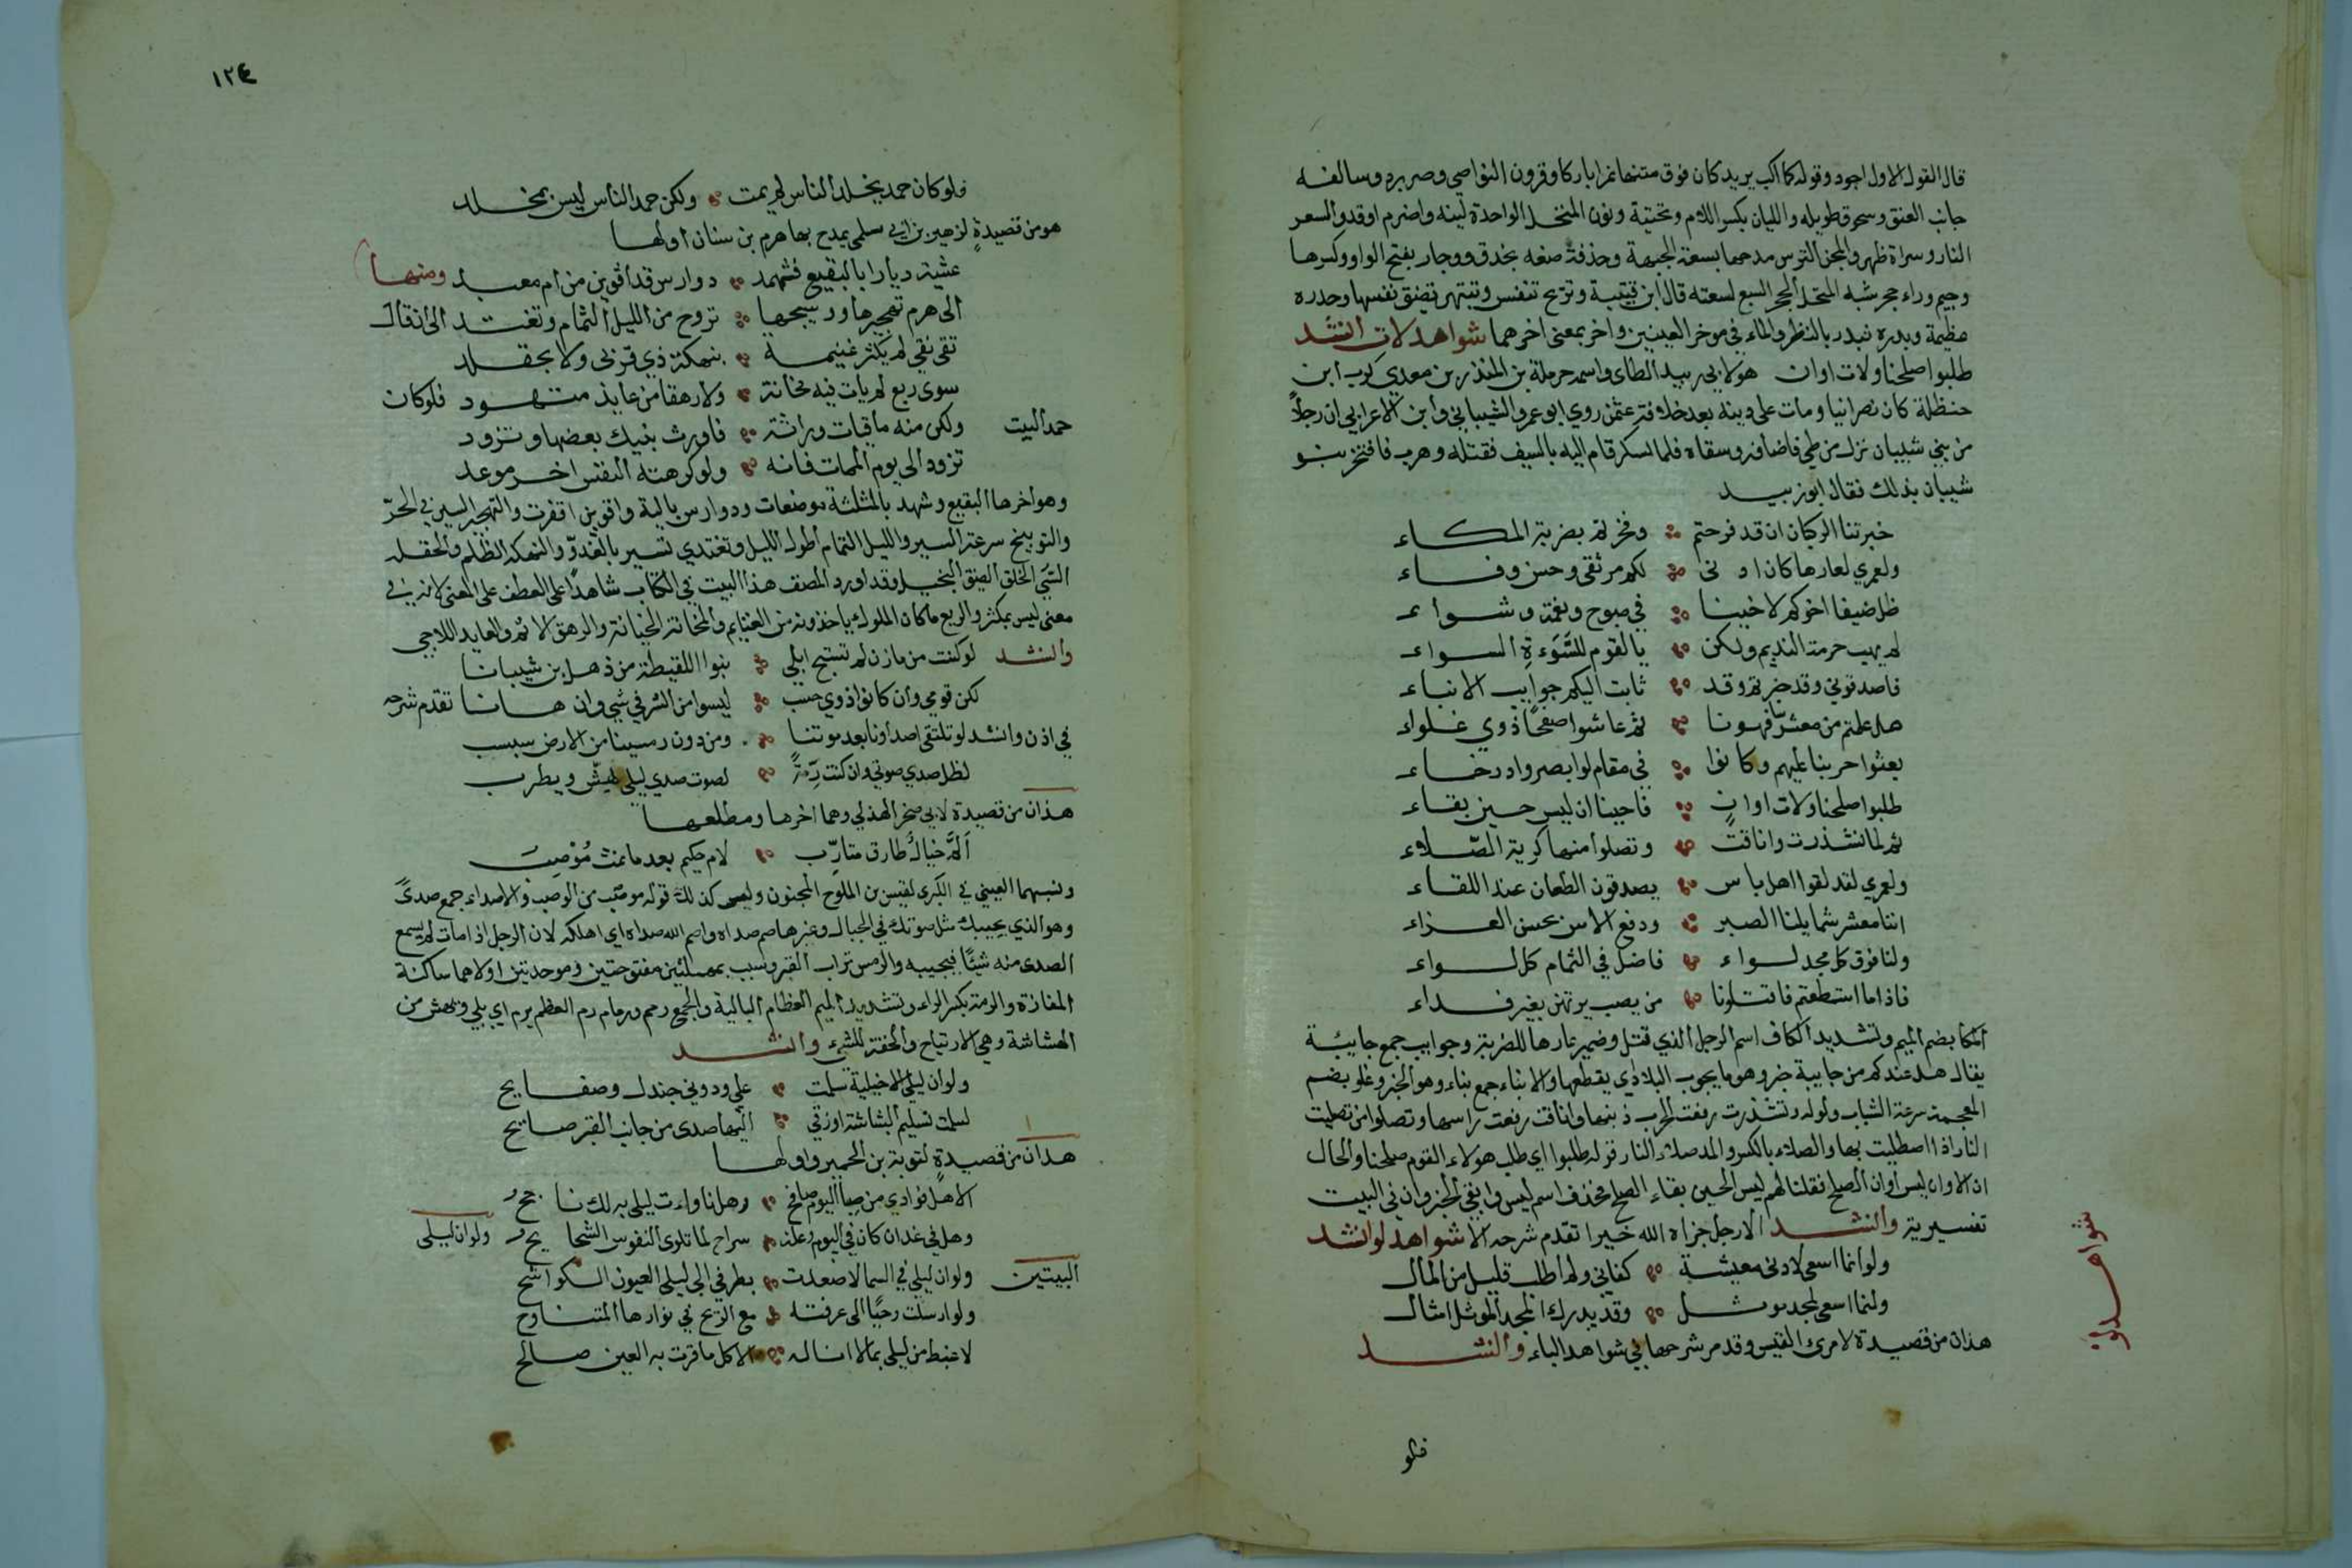 قال القول الاول اجود وقوله كما اكب يريد كان فوق متنها نمرا باركا وقرون النواصي وصر برد وسالفه
جانب العنق وسحوق طويله والليان بكسر اللام وتحتية ونون المنخل الواحدة لينه واضرم اوقد والسعر
النار وسراة ظهر والمجن الترس مدحها بسعة الجبهة وحذفة صنعه بحذق ووجار بفتح الواو وكسرها
وجيم وراء جحر شبه المنخر بجحر السبع لسعته قال ابن قتيبة وتريح تنفس وتنبهر تضيق نفسها وحدره
عظيمة وبدره تبدر بالنظر والماء في موخر العينين واخر بمعنى اخرهما شواهد لات انشد
طلبوا صلحنا ولات اوان هو لابي زبيد الطاي واسمه حرملة بن المنذر بن معدي كرب ابن
حنظلة كان نصرانيا ومات على دينه بعد خلافة عثمن روي ابو عمرو الشيباني وابن الاعرابي ان رجلاً
من بني شيبان نزل من طي فاضافه وسقاه فلما سكر قام اليه بالسيف فقتله وهرب فافتخر بنو
شيبان بذلك فقال ابو زبيد
خبرتنا الركبان ان قد فرحتم وفخرتم بضربة المكاء
ولعمري لعارها كان ادنى لكم من تقى وحسن وفاء
ظل ضيفا اخوكم لاخينا في صبوح ونعمة وشواء
لم يهب حرمة النديم ولكن يا لقوم للسَّوَءةِ السواء
فاصدقوني وقد خبرتم وقد ثابت اليكم جوايب الانباء
هل علمتم من معشر فهونا ثم عاشوا صفحًا ذوي غلواء
بعثوا حربنا اليهم وكانوا في مقام لو ابصروا ورخاء
طلبوا صلحنا ولات اوانٍ فاجبنا ان ليس حين بقاء
ثم لما تشذرت وانافت وتصلوا منها كريه الصّلاء
ولعمري لقد لقوا اهل باس يصدقون الطعان عند اللقاء
اننا معشر شمايلنا الصبر ودفع الاسى بحسن العزاء
ولنا فوق كل مجد لواء فاضل في التمام كل لواء
فاذا ما استطعتم فاقتلونا من يصب يرتهن بغير فداء
المكا بضم الميم وتشديد الكاف اسم الرجل الذي قتل وضمير عارها للضربة وجوايب جمع جايبة
يقال هل عندكم من جايبة خبر وهو ما يجوب البلاد اي يقطعها والانباء جمع نباء وهو الخبر وغلو بضم
المعجمة سرعة الشباب واوله وتشذرت رفعت الحرب ذنبها وانافت رفعت راسها وتصلوا من تصليت
النار اذا اصطليت بها والصلاء بالكسر والمد صلاء النار قوله طلبوا اي طلب هولاء القوم صلحنا والحال
ان الاوان ليس اوان الصلح فقلنا لهم ليس الحين بقاء الصلح فحذف اسم ليس وابقى الخبر وان في البيت
تفسيرية وانشد الا رجل جزاه الله خيرا تقدم شرحه الا شواهد لو انشد
ولو انما اسعى لادنى معيشة كفاني ولم اطلب قليل من المال
ولنما اسعى لمجد موثل وقد يدرك المجد الموثل امثال
هذان من قصيدة لامرئ القيس وقد مر شرحها في شواهد الباء وانشد
شواهد لو
فلو
١٢٤
فلو كان حمد يخلد الناس لم يمت ولكن حمد الناس ليس بمخلد
هو من قصيدةٍ لزهير بن ابي سلمى يمدح بها هرم بن سنان اولها
غشيت ديارا بالبقيع فثهمد دوارس قد اقوين من ام معبد ومنها
الى هرم تهجيرها ووسيجها تروح من الليل التمام وتغتد الى ان قال
تقى نقي لم يكثر غنيمة بنهكة ذي قربى ولا بحقلد
سوى ربع لم يات فيه مخانة ولا رهقا من عايذ متهود فلو كان
حمد البيت ولكن منه باقيات وراثة فاورث بنيك بعضها وتزود
تزود الى يوم الممات فانه ولو كرهته النفس اخر موعد
وهو اخرها البقيع وثهمد بالمثلثة موضعات ودوارس بالية واقوين اقفرت والتهجير السير في الحرّ
والتوسيج سرعة السير والليل التمام اطول الليل وتغتدي تسير بالغدوّ والنهكه الظلم والحقلد
السّي الخلق الضيق البخيل وقد اورد المصنف هذا البيت في الكتاب شاهدًا على العطف على المعنى لانه في
معنى ليس بمكثر والربع ما كان الملوك ياخذونه من الغنايم والمخانة الخيانة والرهق الاثم والعايد اللاجي
وانشد لو كنت من مازن لم تستبح ابلي بنوا اللقيطة من ذهل بن شيبانا
لكن قومي وان كانوا ذوي حسب ليسوا من الشر في شي وان هانا تقدم شرحه
في اذن وانشد لو تلتقي اصداونا بعد موتنا ومن دون رمسينا من الارض سبسب
لظل صدي صوتي وان كنت رِمّةً لصوت صدي ليلى يهشّ ويطرب
هذان من قصيدة لابي صخر الهذلي وهما اخرها ومطلعها
اَلَمَّ خيالٌ طارق متاوّب لام حكيم بعد ما نمت مُوْصِبُ
ونسبهما العيني في الكبرى لقيس بن الملوح المجنون وليس كذلك قوله موصب من الوصب والاصداء جمع صدىً
وهو الذي يجيبك مثل صوتك في الجبال وغيرها صم صداه واصم الله صداه اي اهلكه لان الرجل اذا مات لم يسمع
الصدى منه شيًا فيجيبه والرمس تراب القبر وسبسب بمهملتين مفتوحتين وموحدتين اولاهما ساكنة
المفازة والرمة بكسر الراء وتشديد الميم العظام البالية والجمع رمم ورمام رم العظم يرم اي بلي ويهش من
الهشاشة وهي الارتياح والخفة للشيء وانشد
ولو ان ليلى الاخيلية سلمت علي ودوني جندل وصفايح
لسلمت تسليم البشاشة او زقى اليها صدى من جانب القبر صايح
هذان من قصيدةٍ لتوبة بن الحمير واولها
الا هل فوادي من صبا اليوم صافح وهل ما وات ليلى به لك ناجح
وهل في غد ان كان في اليوم علة سراح لما تلوى النفوس الشحايح ولو ان ليلى
البيتين ولو ان ليلى في السما لاصعدت بطرفي الى ليلى العيون الكواشح
ولو ارسلت وحيًا الى عرفته مع الريح في نوارها المتناوح
لاغبط من ليلى بما لا اناله الا كل ما قرت به العين صالح